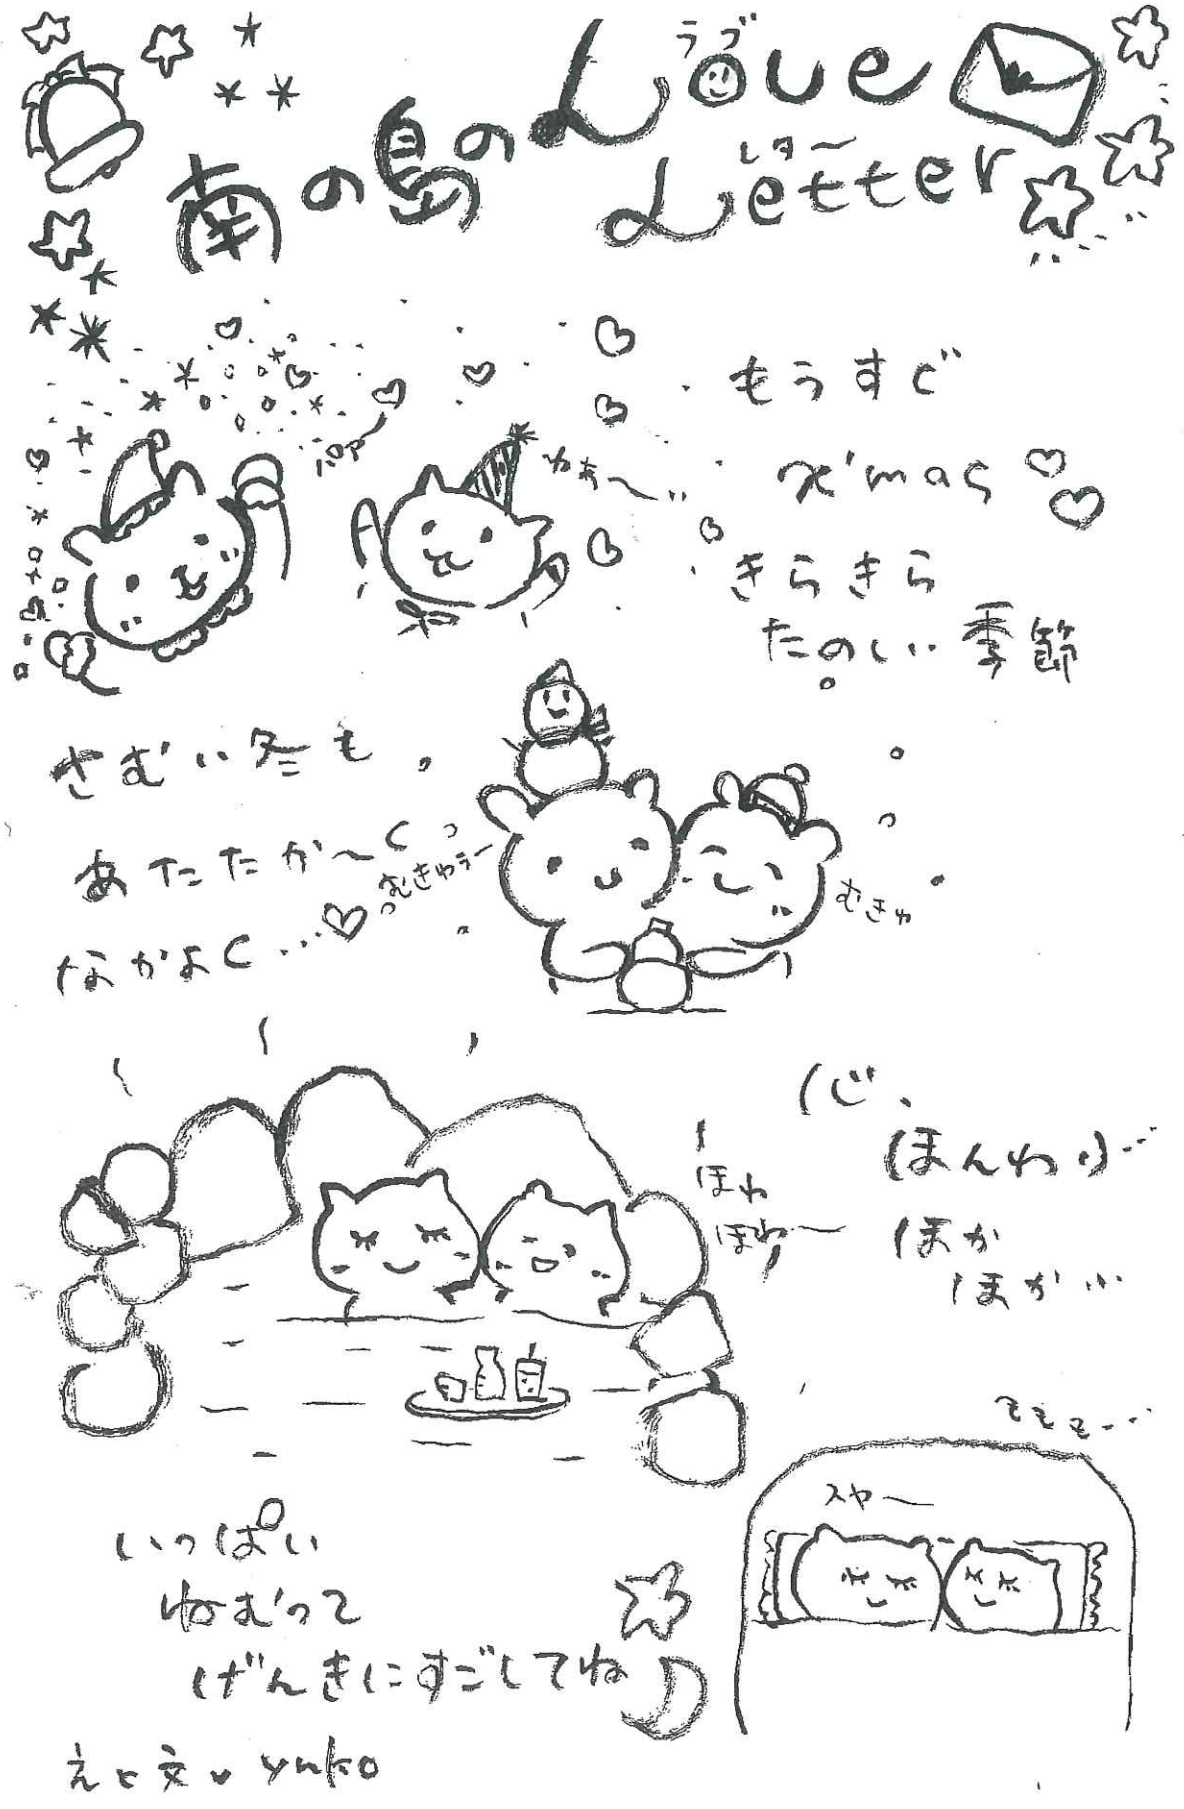 南の島のLove
ラブ
Letter
レター
もうすぐ
x'mas
きらきら
たのしい季節
パァー
わぁ〜
さむい冬も
あたたか〜く
なかよく…
むきゅうー
むきゅ
心、
ほんわり…
ほか
ほか…
ほわ
ほわ〜
zzz…
スヤ〜
いっぱい
ねむって
げんきにすごしてね
えと文 yuko